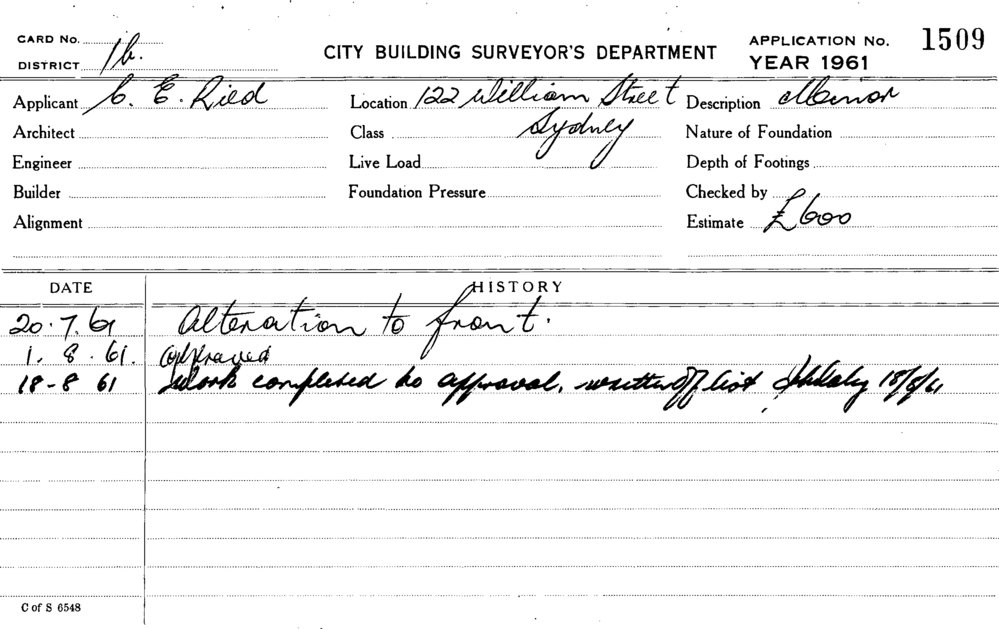 CARD No. CITY BUILDING SURVEYOR'S DEPARTMENT APPLICATION No. 1509
DISTRICT 1b. YEAR 1961
Applicant C. E. Ried Location 122 William Street Description Minor
Architect Class Sydney Nature of Foundation
Engineer Live Load Depth of Footings
Builder Foundation Pressure Checked by
Alignment Estimate £600
DATE HISTORY
20.7.61 Alteration to front.
1.8.61. Approved
18-8 61 Work completed to approval, written off list 18/8/61
C of S 6548